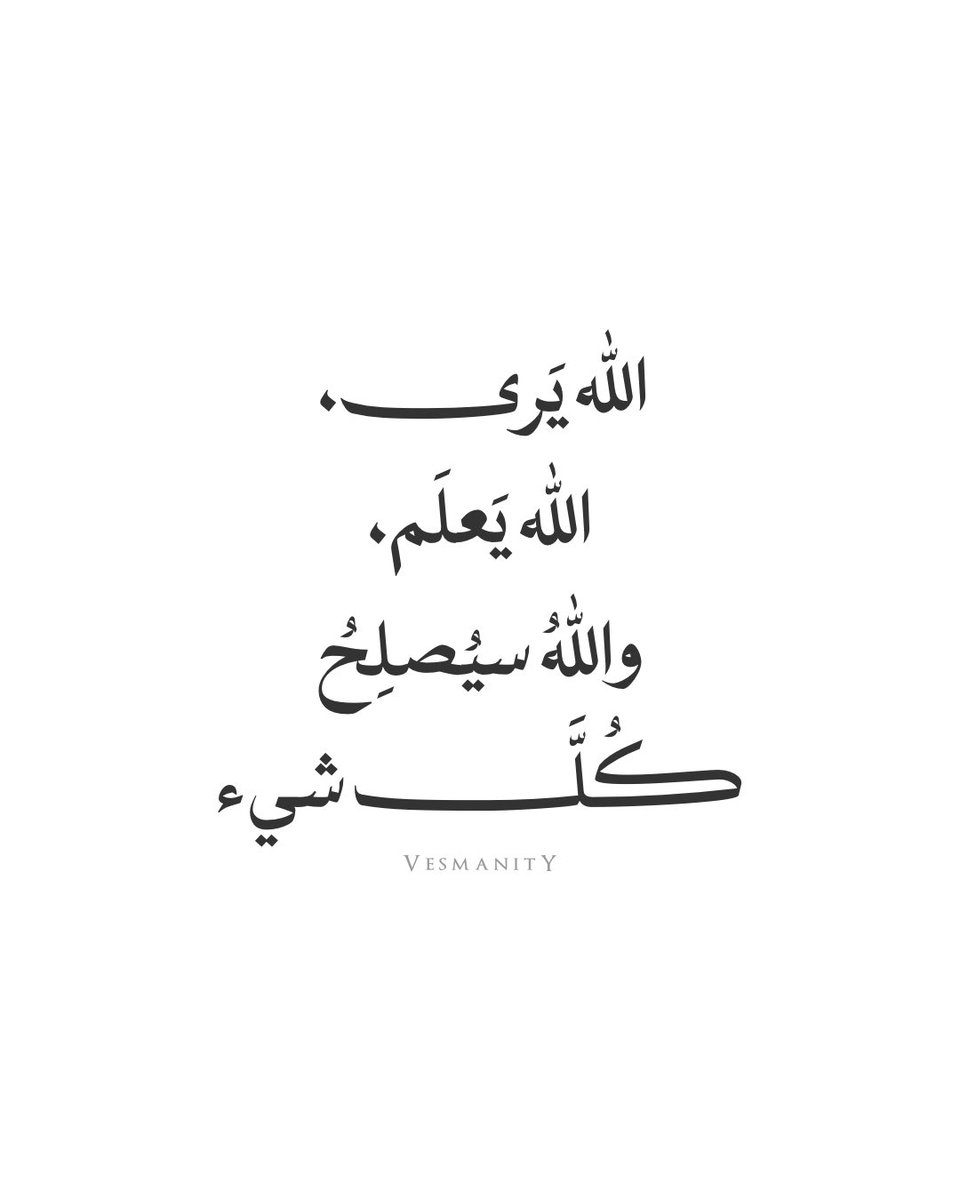 الله يَرى.
الله يَعلَم.
واللهُ سيُصلِحُ
كُلَّ شيء
VESMANITY